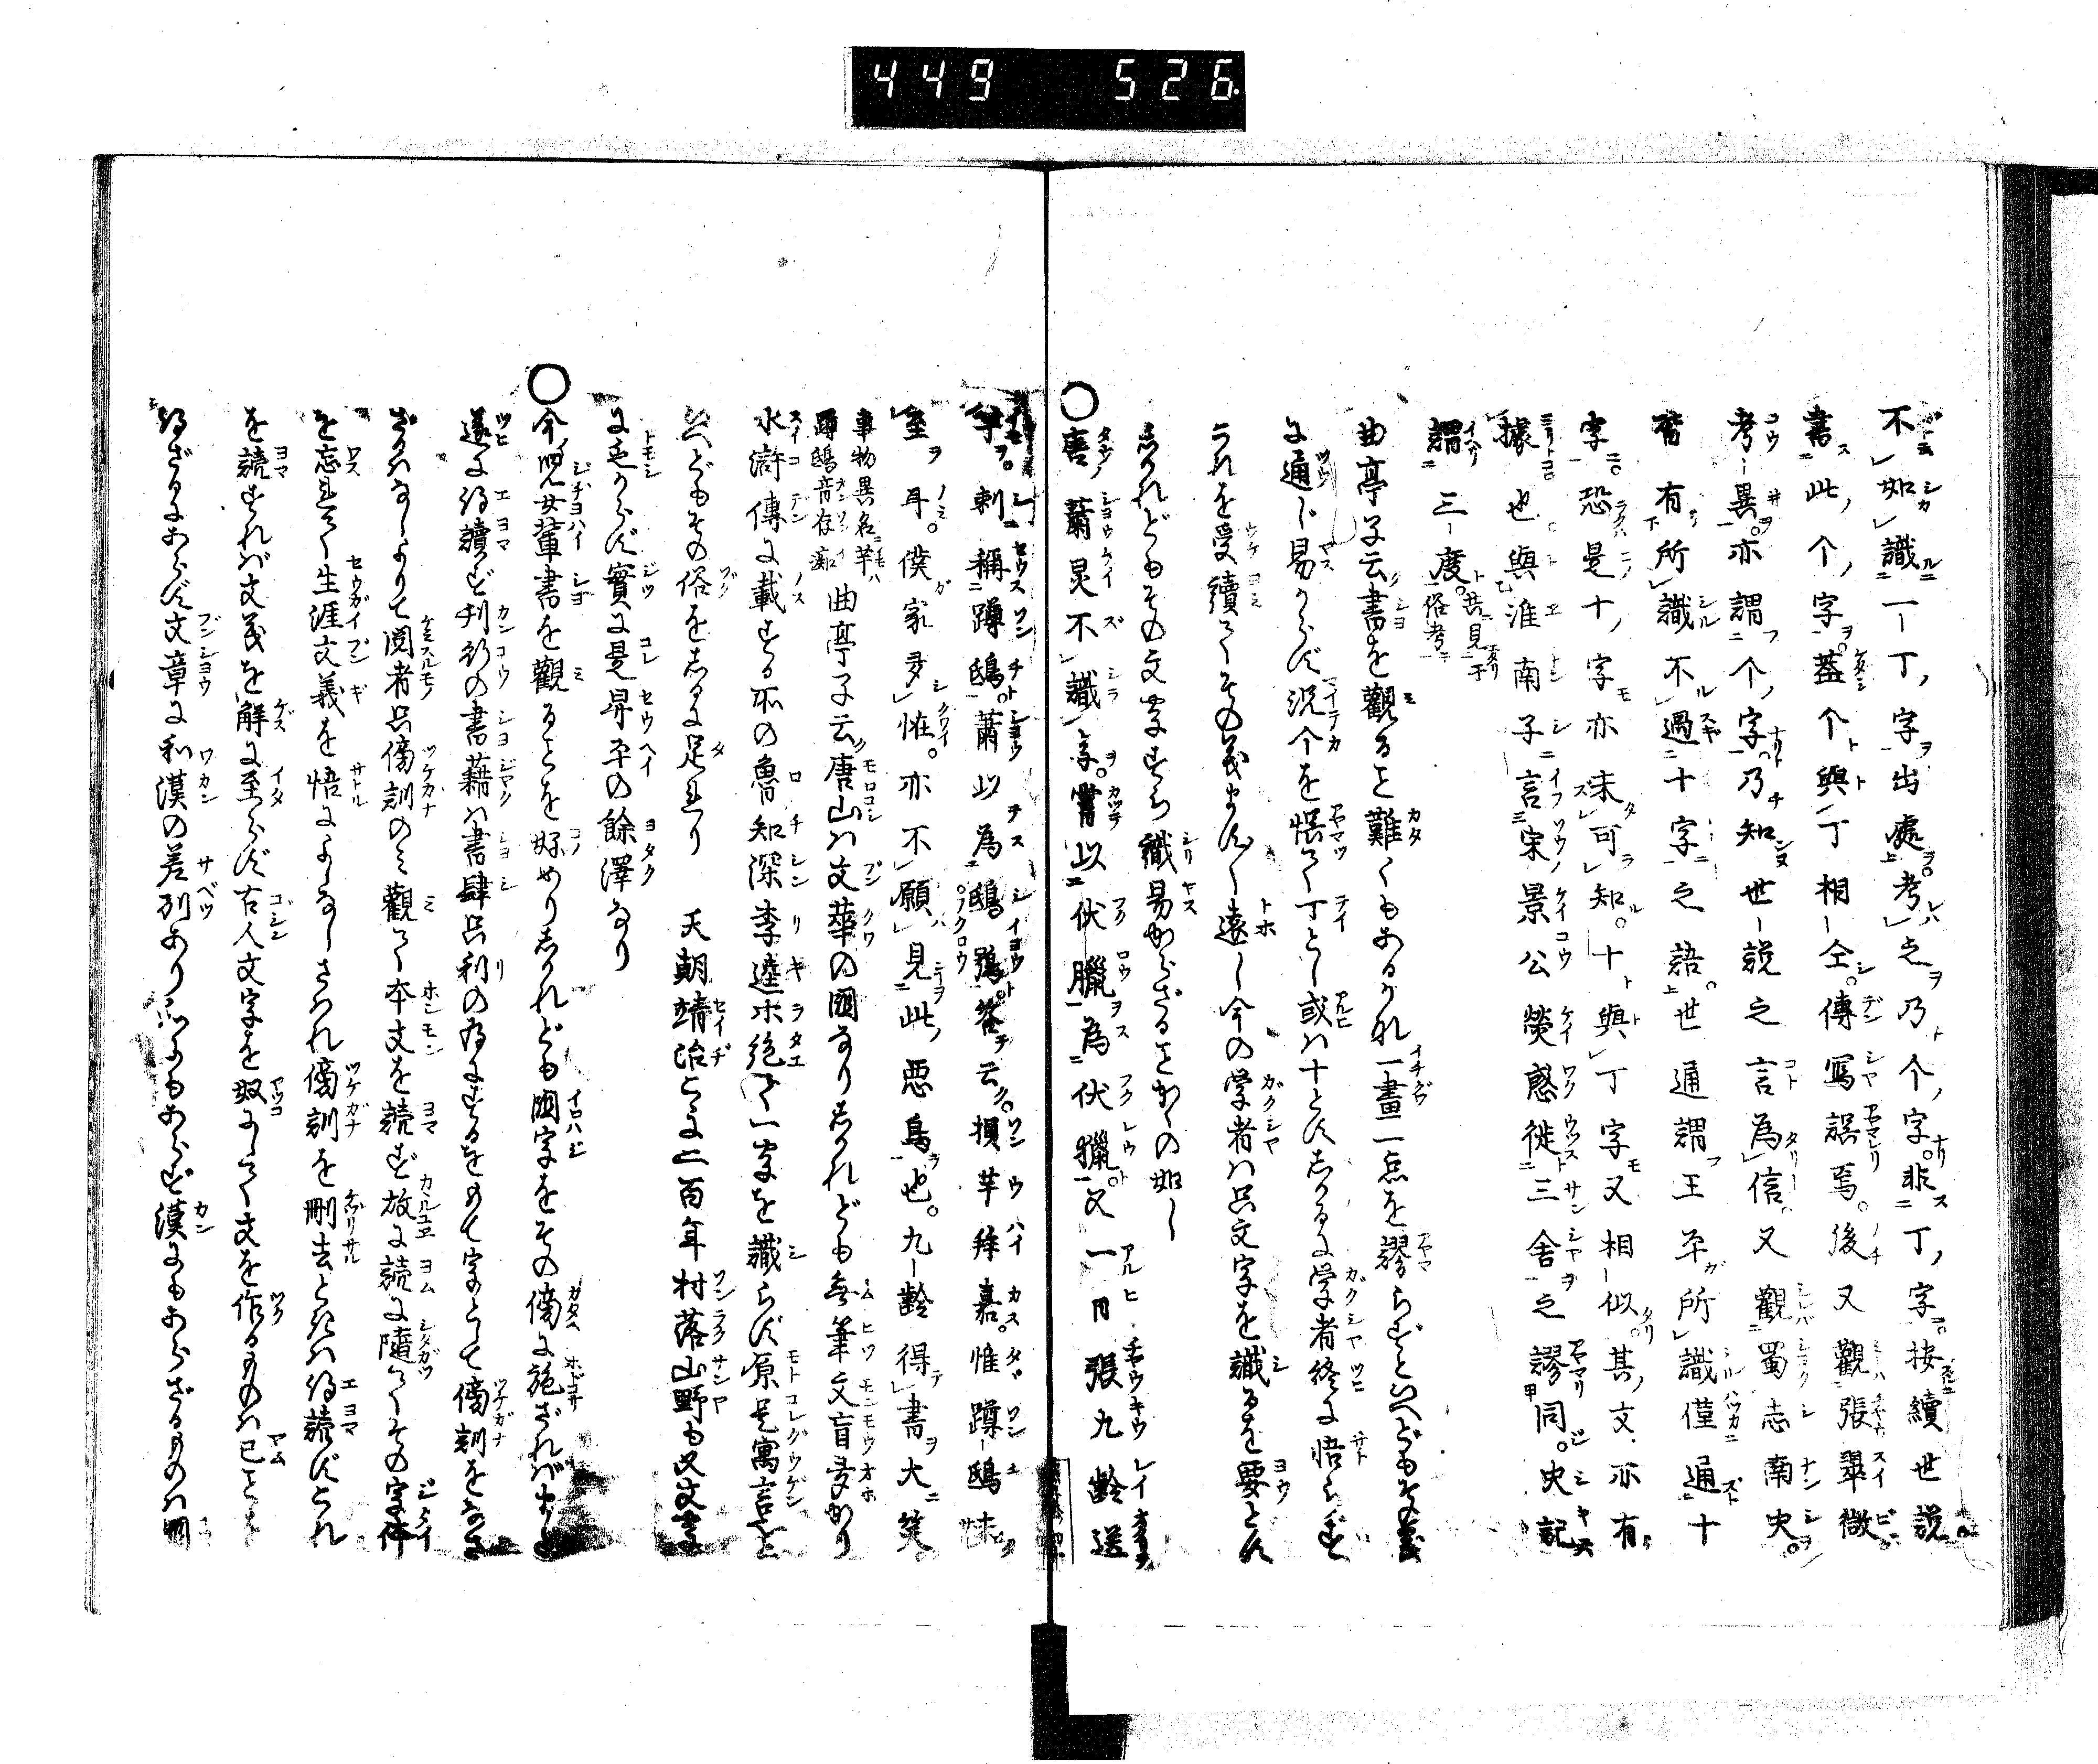 449 526
不如識一丁字出處考之乃个字非丁字按續世說
書此个字蓋个與丁相仝傳寫誤焉後又觀張翠微
考異亦謂个字乃知世說之言為信又觀蜀志南史
皆有所識不過十字之語世通謂王平所識僅通十
字恐是十字亦未可知十與丁字又相似其文亦有
據也與淮南子言宋景公熒惑徙三舍之謬同史記
謂三度共見于俗考
曲亭子云書を觀ること難くもあるかれ一畫一点を謬らずといへどもその義
に通じ易からず況个を悞て丁とし或は十とすしかるに学者終に悟らず
これを受續てその義ます〳〵遠し今の学者は只文字を識るを要とす
しかれどもその文字すら識易からざることかくの如し
○唐蕭炅不識字嘗以伏臘為伏獵又一日張九齡送
芋剌稱蹲鴟蕭以為鴟鴞答云損芋拜嘉惟蹲鴟未
至耳僕家多怪亦不願見此惡鳥也九齡得書大笑
事物異名芋ハ蹲鴟音存痴
曲亭子云唐山は文華の國なりしかれども無筆文盲多かり
水滸傳に載する所の魯知深李逵ホ絶て一字を識らず原是寓言と
いへどもその俗をしるに足れり 天朝靖治こゝに二百年村落山野も又文字
に乏からず實に是昇平の餘澤なり
○今児女輩書を觀ることを好めりしかれども國字をその傍に施ざれば
遂に得讀ず刋行の書藉は書肆只利の為にするをもて字ごとに傍訓をなさ
ざるはなしよりて閲者只傍訓のミ觀て本文を読ず故に読に隨てその字体
を忘れて生涯文義を悟によしなしさはれ傍訓を刪去ときは得読ずこれ
を読ざれば文義を解に至らず古人文字を奴にして文を作るものは已ことを
得ざるにあらず文章に和漢の差別あり和にもあらず漢にもあらざるものは國